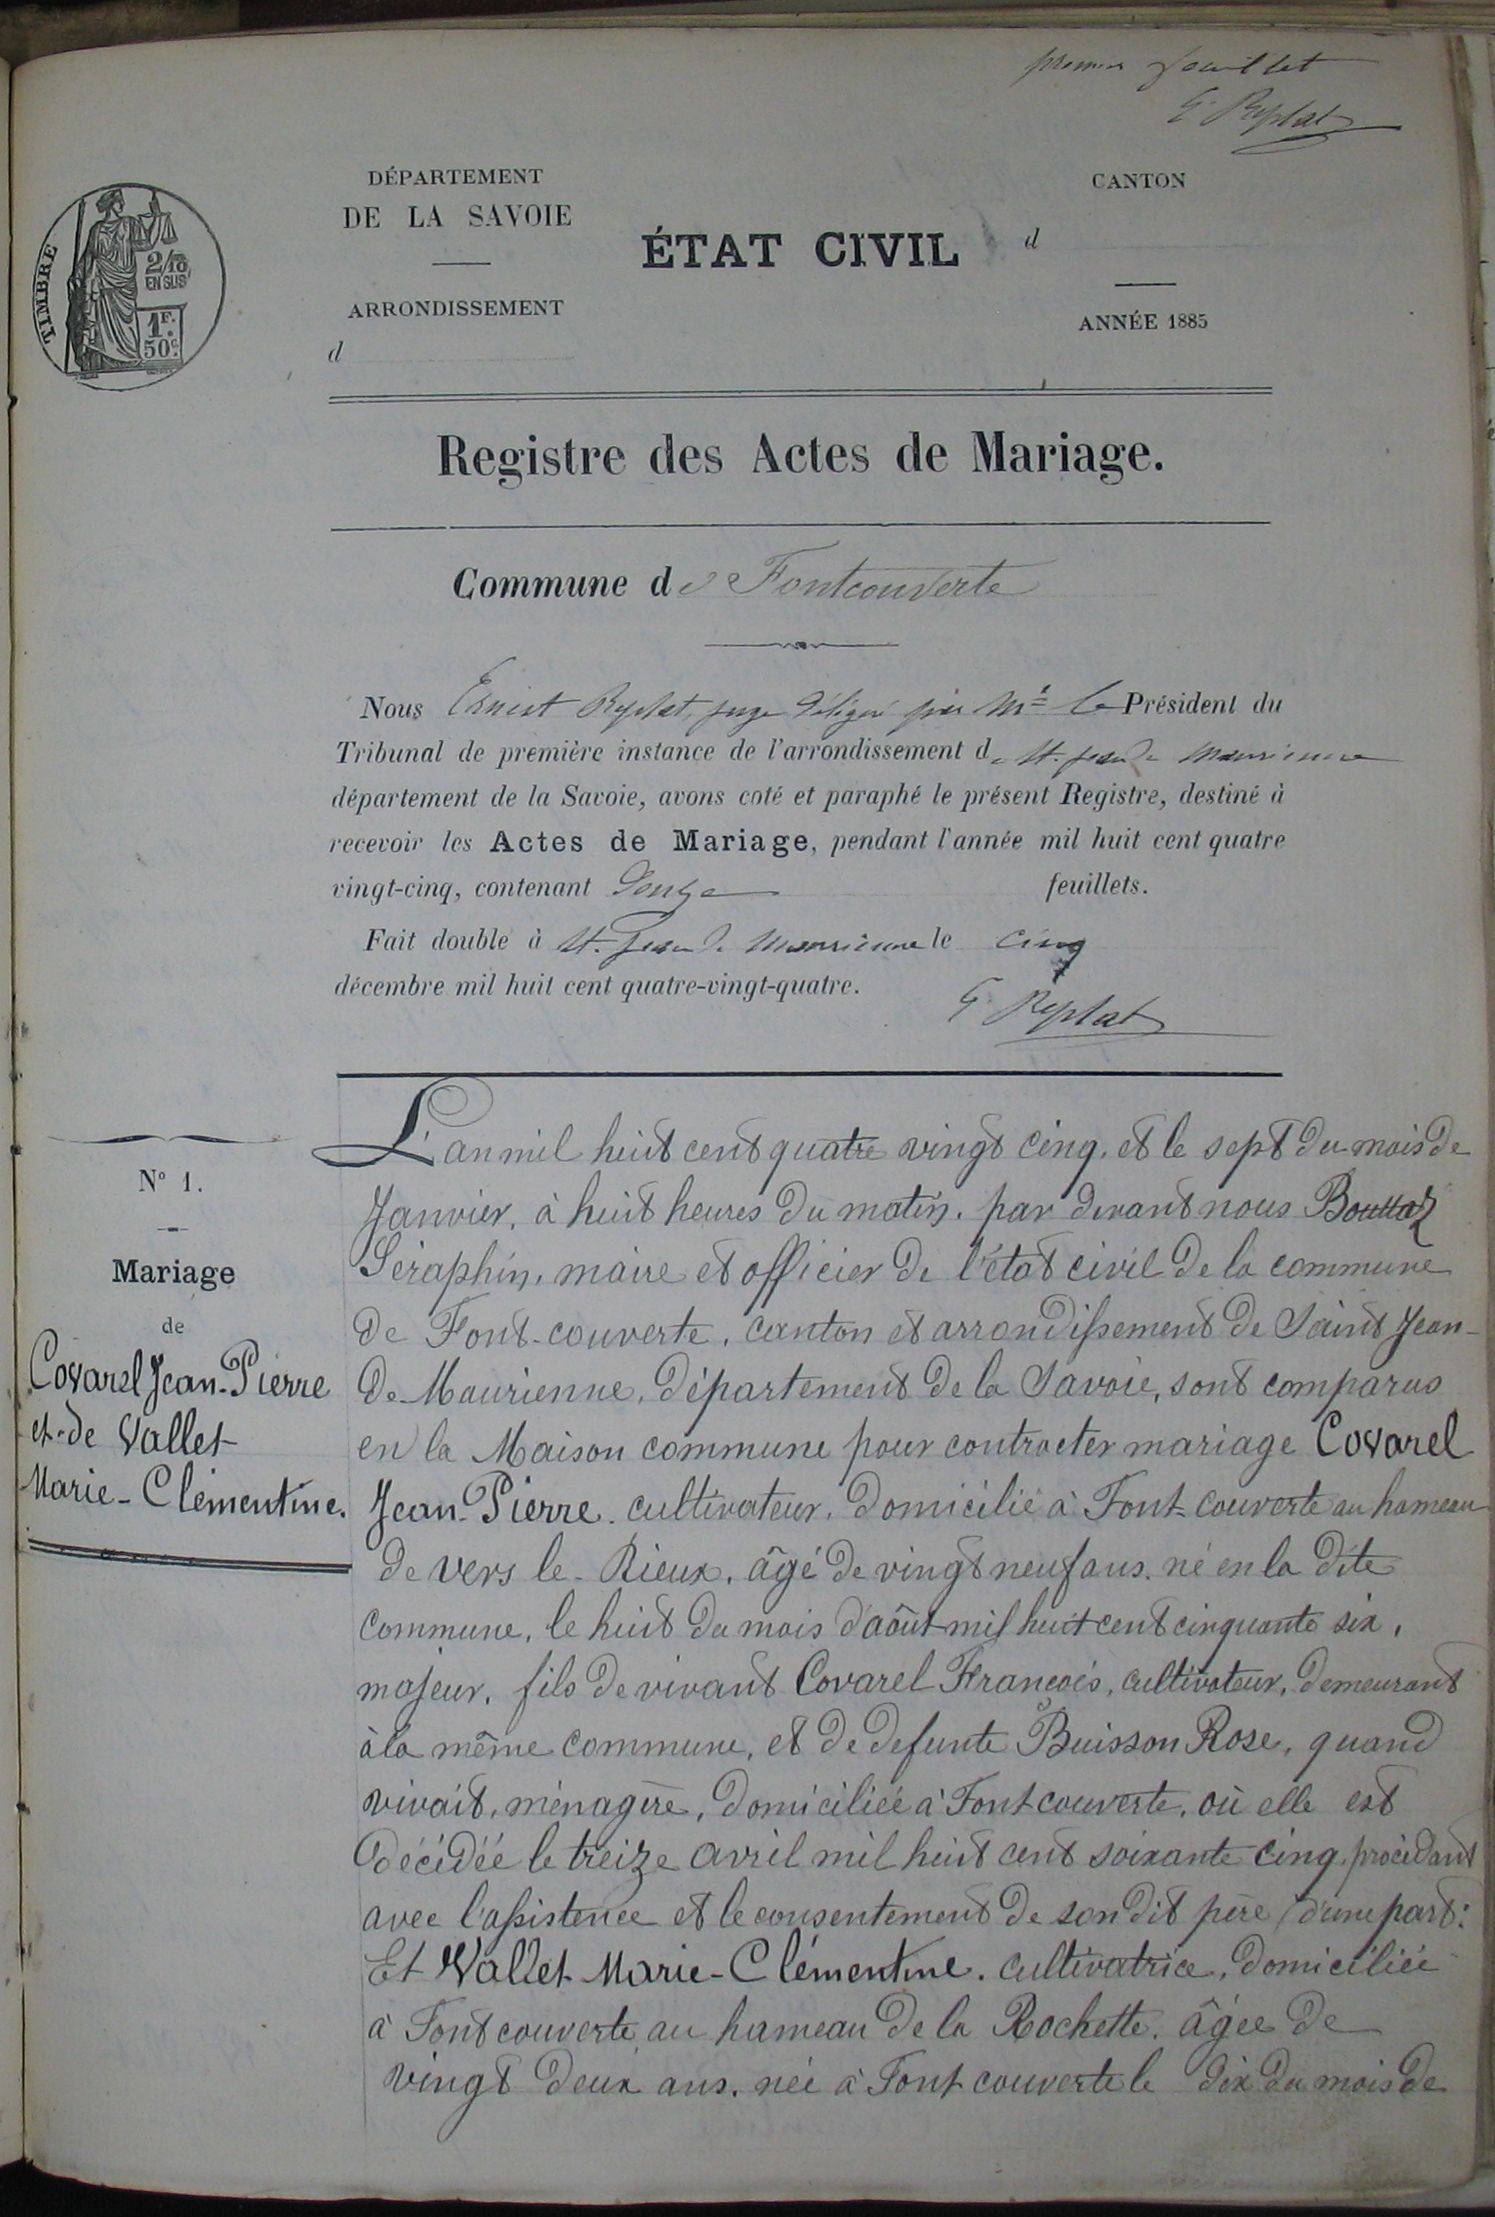 premier feuillet
E. Replat
DÉPARTEMENT
DE LA SAVOIE
ARRONDISSEMENT
d
ÉTAT CIVIL
CANTON
d
ANNÉE 1885
TIMBRE
2/10
EN SUS
1F.
50c.
Registre des Actes de Mariage.
Commune de Fontcouverte
Nous Ernest Replat, juge délégué par Mr le Président du
Tribunal de première instance de l'arrondissement de St. Jean de Maurienne
département de la Savoie, avons coté et paraphé le présent Registre, destiné à
recevoir les Actes de Mariage, pendant l'année mil huit cent quatre
vingt-cinq, contenant douze feuillets.
Fait double à St. Jean de Maurienne le cinq
décembre mil huit cent quatre-vingt-quatre.
E. Replat
N° 1.
Mariage
de
Covarel Jean-Pierre
et de Vallet
Marie-Clémentine.
L'an mil huit cent quatre vingt cinq, et le sept du mois de
Janvier, à huit heures du matin, par devant nous Bouttaz
Séraphin, maire et officier de l'état civil de la commune
de Font-couverte, canton et arrondissement de Saint Jean-
de-Maurienne, département de la Savoie, sont comparus
en la Maison commune pour contracter mariage Covarel
Jean-Pierre, cultivateur, domicilié à Font-couverte au hameau
de vers le-Rieux, âgé de vingt neuf ans, né en la dite
commune, le huit du mois d'août mil huit cent cinquante six,
majeur, fils de vivant Covarel François, cultivateur, demeurant
à la même commune, et de defunte Buisson Rose, quand
vivait, ménagère, domiciliée à Font couverte, où elle est
décédée le treize avril mil huit cent soixante cinq, procédant
avec l'assistence et le consentement de son dit père, d'une part:
Et Vallet Marie-Clémentine, cultivatrice, domiciliée
à Font couverte au hameau de la Rochette, âgée de
vingt deux ans, née à Font couverte le dix du mois de